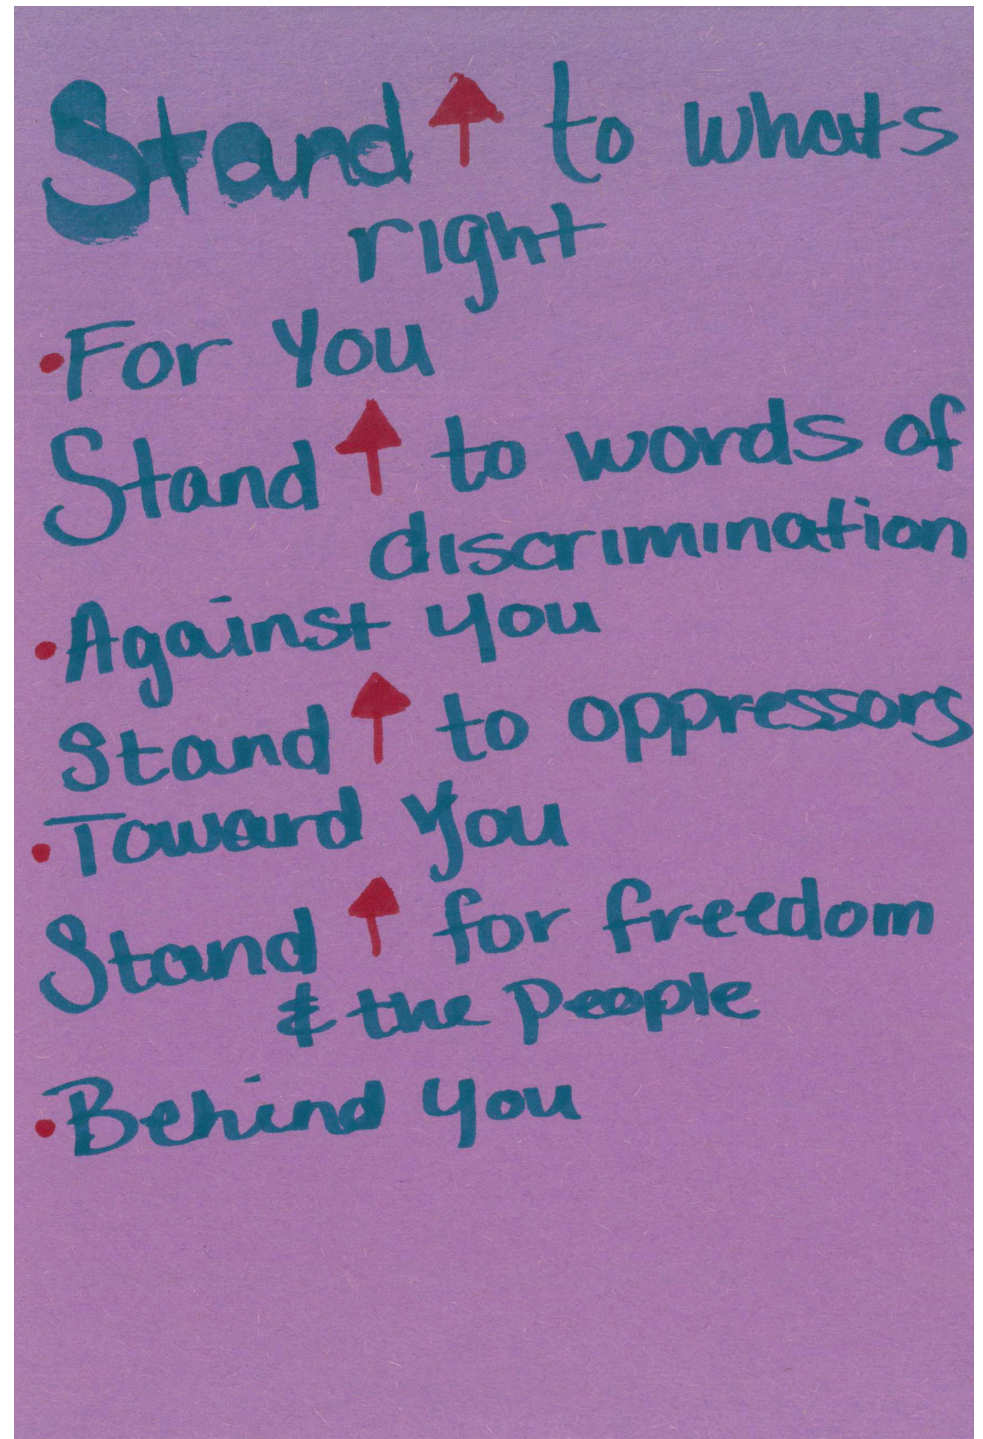 Stand ↑ to whats
right
•For You
Stand ↑ to words of
discrimination
•Against you
Stand ↑ to oppressors
•Toward You
Stand ↑ for freedom
& the people
•Behind you